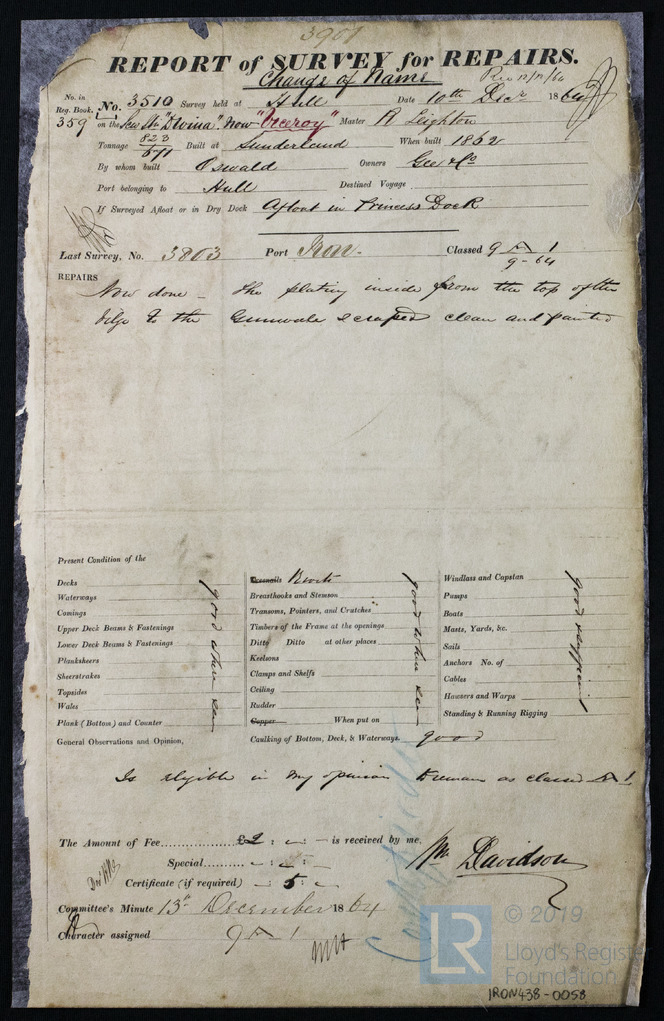 3901
REPORT of SURVEY for REPAIRS.
Change of Name
Rec 12/12/64
No. in Reg. Book. No. 3510 Survey held at Hull Date 10th Decr 1864
359 on the Scw Str "Dwina". Now "Viceroy" Master R Leighton
Tonnage 823 / 571 Built at Sunderland When built 1862
By whom built Oswald Owners Gee & Co
Port belonging to Hull Destined Voyage
If Surveyed Afloat or in Dry Dock Afloat in Princess Dock
Last Survey, No. 3803 Port Iron. Classed 9 A 1
9-64
REPAIRS
Now done - The plating inside from the top of the
bilge to the Gunwale scraped clean and painted
Present Condition of the
Decks
Waterways
Comings
Upper Deck Beams & Fastenings
Lower Deck Beams & Fastenings
Planksheers
Sheerstrakes
Topsides
Wales
Plank (Bottom) and Counter
good where seen
General Observations and Opinion,
Treenails Rivets
Breasthooks and Stemson
Transoms, Pointers, and Crutches
Timbers of the Frame at the openings
Ditto Ditto at other places
Keelsons
Clamps and Shelfs
Ceiling
Rudder
Copper When put on
good where seen
Caulking of Bottom, Deck, & Waterways. good
Windlass and Capstan
Pumps
Boats
Masts, Yards, &c.
Sails
Anchors No. of
Cables
Hawsers and Warps
Standing & Running Rigging
good
Is eligible in my opinion to remain as classed A 1
The Amount of Fee £2 : - : - is received by me,
Special
Wm Davidson
Certificate (if required) - 5 : -
Committee's Minute 13th December 1864
Character assigned 9 A 1
LR
© 2019
Lloyd's Register
Foundation
IRON438-0058